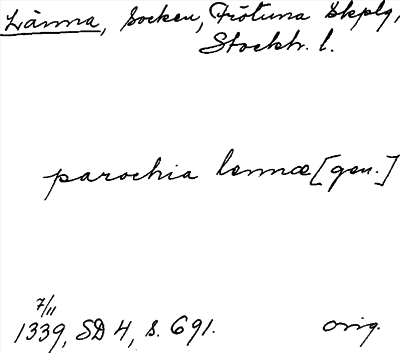 Länna, Socken, Frötuna Skplg,
Stockh. l.
parochia lennæ [gen.]
7/11
1339, SD 4, s. 691. orig.